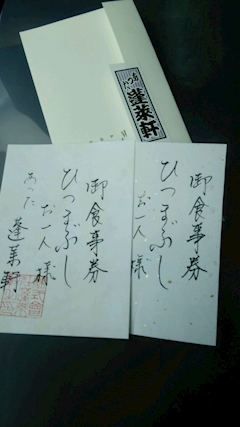 蓬莱軒
御食事券
ひつまぶし
お一人様
御食事券
ひつまぶし
お一人様
あつた 蓬莱軒